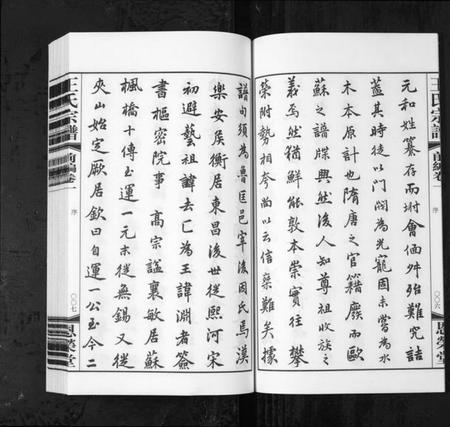 王氏宗譜
前編卷一
序
〇〇六
恩榮堂
元和姓纂存而坿會価舛殆難究詰
蓋其時徒以門閥為光寵固未嘗為水
木本原計也隋唐之官籍廢而歐
蘇之譜牒興然後人知尊祖收族之
義焉然猶鮮能敦本崇實往往攀
榮附勢相夸尚以云信乘難矣據
譜句須為魯匡邑宰後因氏焉漢
樂安侯衡居東昌後世從熙河宋
初避藝祖諱去匚為王諱淵者簽
書樞密院事 高宗謚襄敏居蘇
楓橋十傳至運一元末從無錫又從
夾山始定厥居欽曰自運一公至今二
王氏宗譜
前編卷一
序
〇〇七
恩榮堂